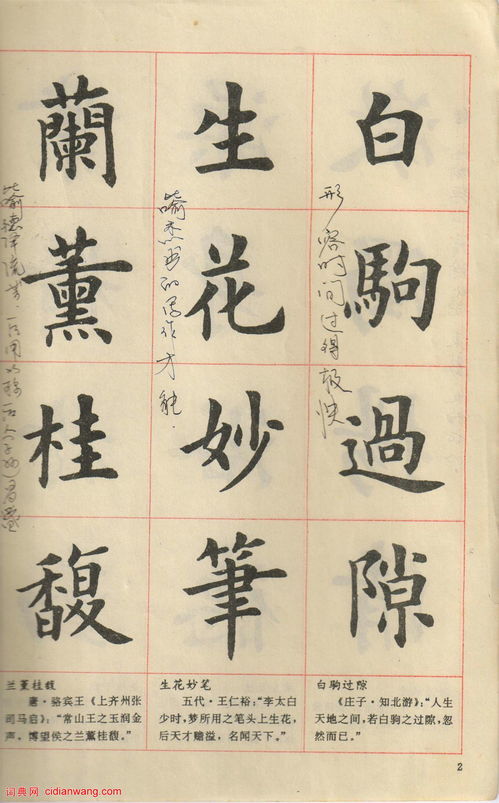 白駒過隙
形容时间过得极快
生花妙筆
喻杰出的写作才能
蘭薰桂馥
喻德泽流芳
白驹过隙
《庄子·知北游》："人生
天地之间，若白驹之过隙，忽
然而已。"
生花妙笔
五代·王仁裕："李太白
少时，梦所用之笔头上生花，
后天才赡溢，名闻天下。"
兰薰桂馥
唐·骆宾王《上齐州张
司马启》："常山王之玉润金
声，博望侯之兰薰桂馥。"
2
词典网 cidianwang.com